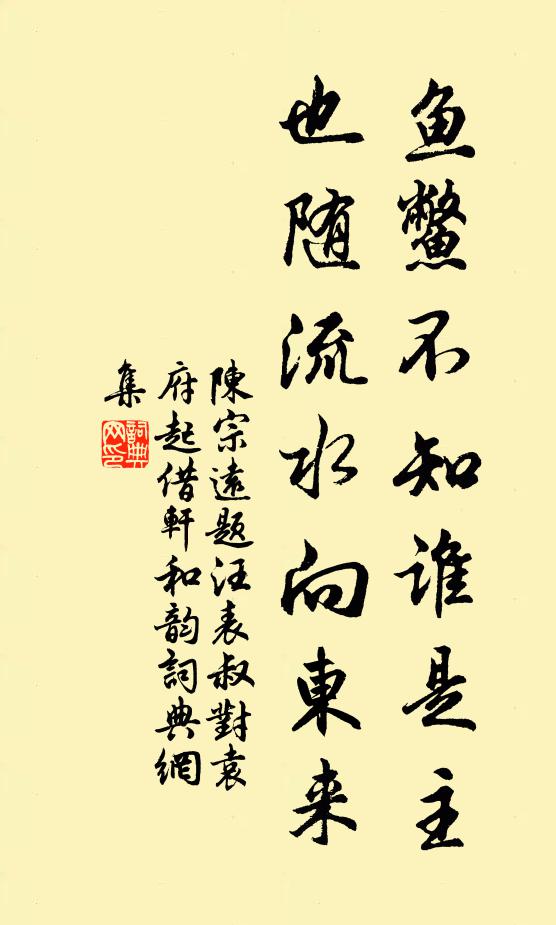 鱼鳖不知谁是主
也随流水向東来
陳宗遠题汪表叔對袁
府起借軒和韵詞典網
集
詞典网印